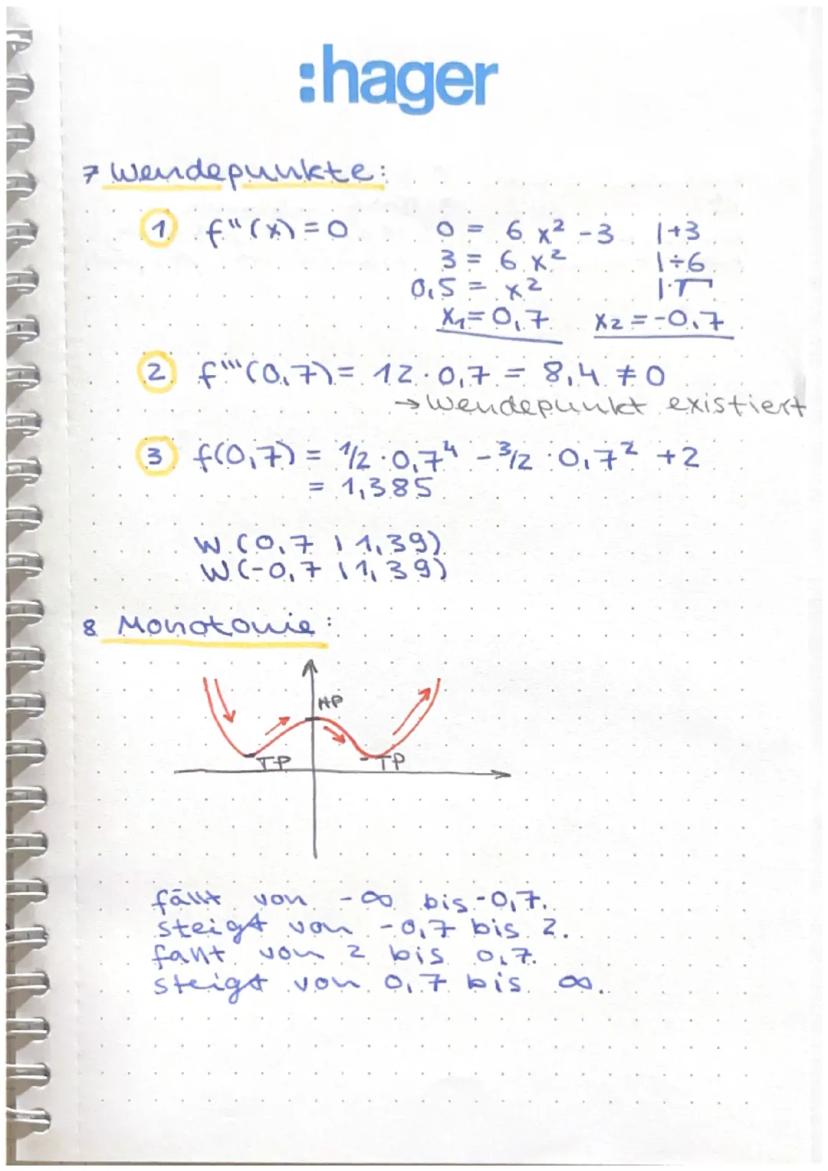 :hager
7 Wendepunkte:
1 f''(x) = 0 0 = 6 x² - 3 |+3
3 = 6 x² |÷6
0,5 = x² |·√
x₁ = 0,7 x₂ = -0,7
2 f'''(0,7) = 12 · 0,7 = 8,4 ≠ 0
→ Wendepunkt existiert
3 f(0,7) = 1/2 · 0,7⁴ - 3/2 · 0,7² + 2
= 1,385
W (0,7 | 1,39)
W (-0,7 | 1,39)
8 Monotonie:
HP
TP TP
fällt von -∞ bis -0,7.
steigt von -0,7 bis 2.
fällt von 2 bis 0,7.
steigt von 0,7 bis ∞.